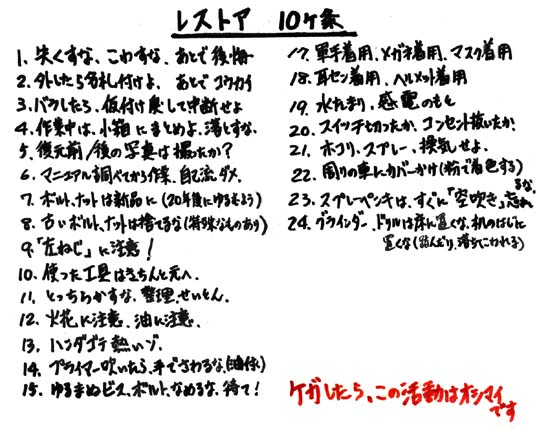 レストア 10ヶ条
1. 失くすな、こわすな、あとで後悔
2. 外したら名札付けよ、あとでコウカイ
3. バラしたら、仮付け戻して中断せよ
4. 作業中は、小箱にまとめよ、落とすな。
5. 復元前/後の写真は撮ったか?
6. マニュアル調べてから作業、自己流ダメ、
7. ボルト、ナットは新品に(20年後にゆるむよう)
8. 古いボルト、ナットは捨てるな(特殊なものあり)
9.「左ねじ」に注意!
10. 使った工具はきちんと元へ、
11. とっちらかすな、整理、せいとん。
12. 火花に注意、油に注意、
13. ハンダゴテ熱いゾ、
14. プライマー吹いたら、手でさわるな、(油付く)
15. ゆるまぬビス、ボルト、なめるな、待て!
17. 軍手着用、メガネ着用、マスク着用
18. 耳セン着用、ヘルメット着用
19. 水たまり、感電のもと
20. スイッチ切ったか、コンセント抜いたか、
21. ホコリ、スプレー、換気せよ、
22. 周りの車にカバーかけ(粉で着色する)
23. スプレーペンキは、すぐに「空吹き」忘れ
るな、
24. グラインダー、ドリルは床に置くな、机のはじに
置くな(踏んだり、落ちてこわれる)
ケガしたら、この活動はオシマイ
です